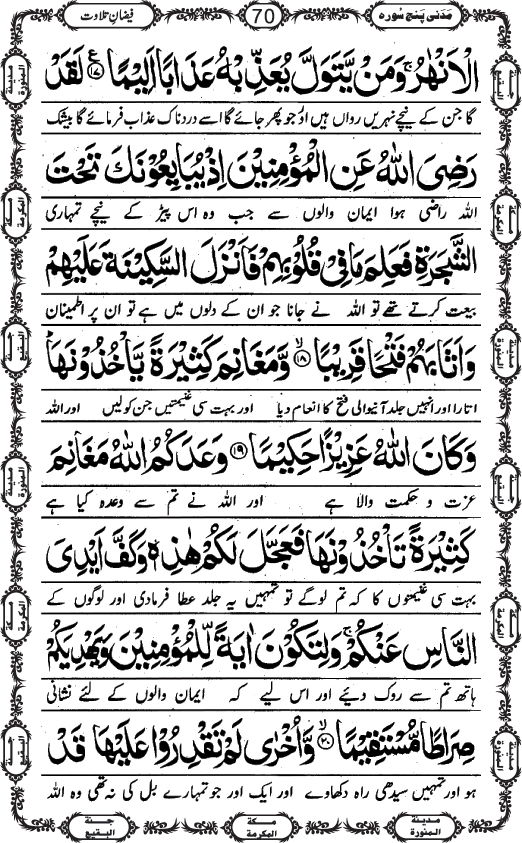 مَدَنی پَنج سُورہ
70
فیضانِ تلاوت
الْاَنْهٰرُ ۚ وَ مَنْ یَّتَوَلَّ یُعَذِّبْهُ عَذَابًا اَلِیْمًا ﴿۱۷﴾ لَقَدْ
گا جن کے نیچے نہریں رواں ہیں اور جو پھر جائے گا اسے دردناک عذاب فرمائے گا بیشک
رَضِیَ اللّٰهُ عَنِ الْمُؤْمِنِیْنَ اِذْ یُبَایِعُوْنَكَ تَحْتَ
اللہ راضی ہوا ایمان والوں سے جب وہ اس پیڑ کے نیچے تمہاری
الشَّجَرَةِ فَعَلِمَ مَا فِیْ قُلُوْبِهِمْ فَاَنْزَلَ السَّكِیْنَةَ عَلَیْهِمْ
بیعت کرتے تھے تو اللہ نے جانا جو ان کے دلوں میں ہے تو ان پر اطمینان
وَ اَثَابَهُمْ فَتْحًا قَرِیْبًا ﴿۱۸﴾ وَّ مَغَانِمَ كَثِیْرَةً یَّاْخُذُوْنَهَا ؕ
اتارا اور انہیں جلد آنیوالی فتح کا انعام دیا اور بہت سی غنیمتیں جن کو لیں اور اللہ
وَ كَانَ اللّٰهُ عَزِیْزًا حَكِیْمًا ﴿۱۹﴾ وَعَدَكُمُ اللّٰهُ مَغَانِمَ
عزت و حکمت والا ہے اور اللہ نے تم سے وعدہ کیا ہے
كَثِیْرَةً تَاْخُذُوْنَهَا فَعَجَّلَ لَكُمْ هٰذِهٖ وَ كَفَّ اَیْدِیَ
بہت سی غنیمتوں کا کہ تم لوگے تو تمہیں یہ جلد عطا فرمادی اور لوگوں کے
النَّاسِ عَنْكُمْ ۚ وَ لِتَكُوْنَ اٰیَةً لِّلْمُؤْمِنِیْنَ وَ یَهْدِیَكُمْ
ہاتھ تم سے روک دئیے اور اس لیے کہ ایمان والوں کے لئے نشانی
صِرَاطًا مُّسْتَقِیْمًا ﴿۲۰﴾ وَّ اُخْرٰى لَمْ تَقْدِرُوْا عَلَیْهَا قَدْ
ہو اور تمہیں سیدھی راہ دکھاوے اور ایک اور جو تمہارے بل کی نہ تھی وہ اللہ
مدینۃ المنورۃ
مکۃ المکرمۃ
جنۃ البقیع